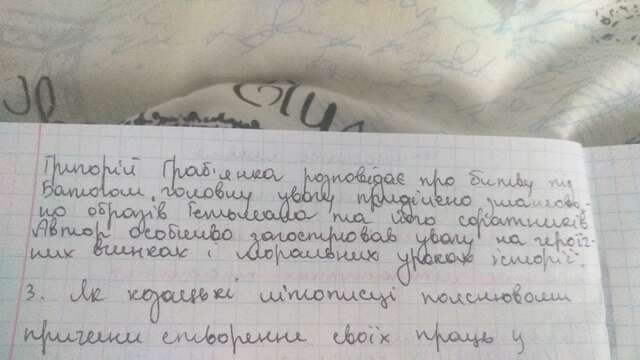 Григорій Граб'янка розповідає про битву під
Батогом, головну увагу приділено змалюван-
ню образів Гетьмана та його соратників.
Автор особливо загострював увагу на героїч-
них вчинках і моральних уроках історії.
3. Як козацькі літописці пояснювали
причини створення своїх праць у